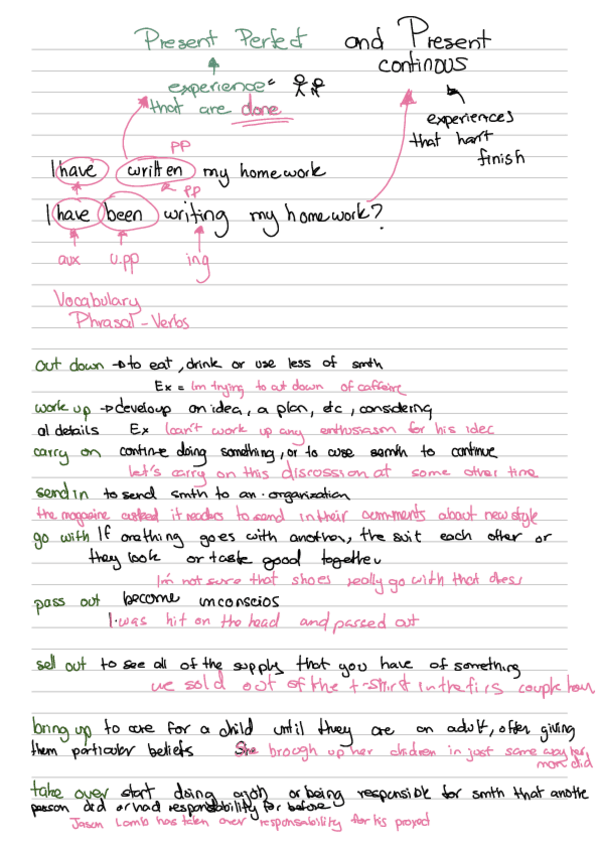 Present Perfect and Present
continous
experience
that are done
experiences
that han't
finish
PP
I have written my homework
PP
I have been writing my homework?
aux v.pp ing
Vocabulary
Phrasal-Verbs
cut down → to eat, drink or use less of smth
Ex = Im trying to cut down of caffeine
work up → develoup an idea, a plan, etc, considering
al details Ex I can't work up any enthusiasm for his idec
carry on continue doing something, or to cuse semth to continue
let's carry on this discrossion at some other time
send in to send smth to an organization
the magazine asked it readers to send in their comments about new style
go with If onething goes with another, the suit each other or
they look or taste good together
I'm not sure that shoes really go with that dress
pass out become unconscios
I was hit on the head and passed out
sell out to see all of the supply that you have of something
we sold out of the t-shirt in the firs couple hour
bring up to care for a child until they are an adult, often giving
them particular beliefs She brough up her children in just same way her
mom did
take over start doing a job or being responsible for smth that anothe
person did or had responsability for before
Jason Lamb has taken over responsability for his proyect